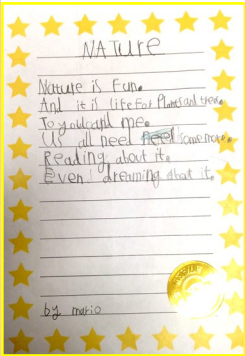 NATURE
Nature is Fun.
And it is life for Plants and trees.
To you and me.
Us all need some more.
Reading about it.
Even dreaming about it.
by mario